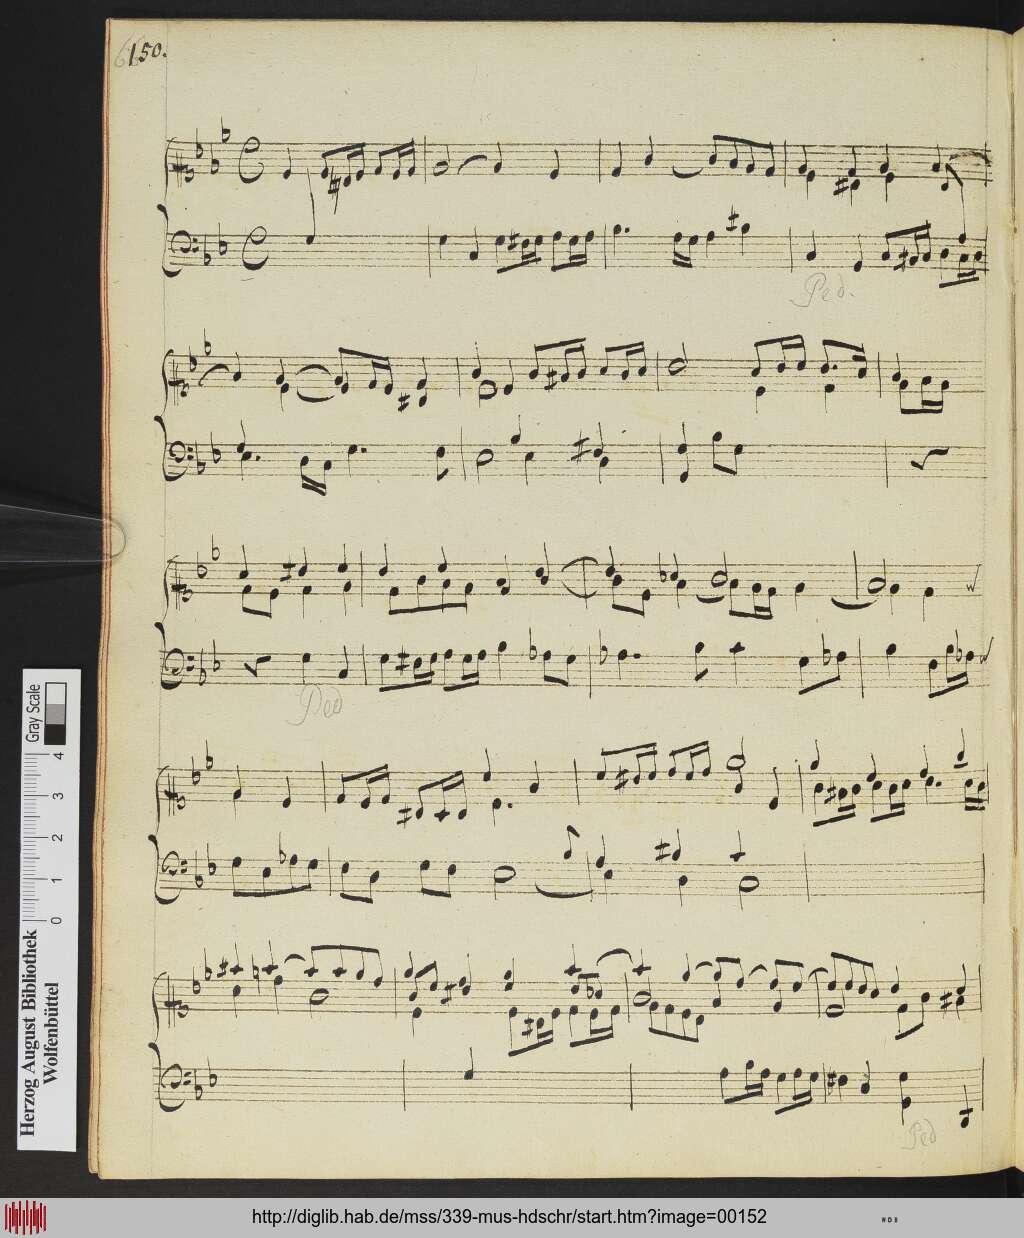 150.
Ped.
Ped
Ped
Gray Scale
0 1 2 3 4
Herzog August Bibliothek
Wolfenbüttel
http://diglib.hab.de/mss/339-mus-hdschr/start.htm?image=00152